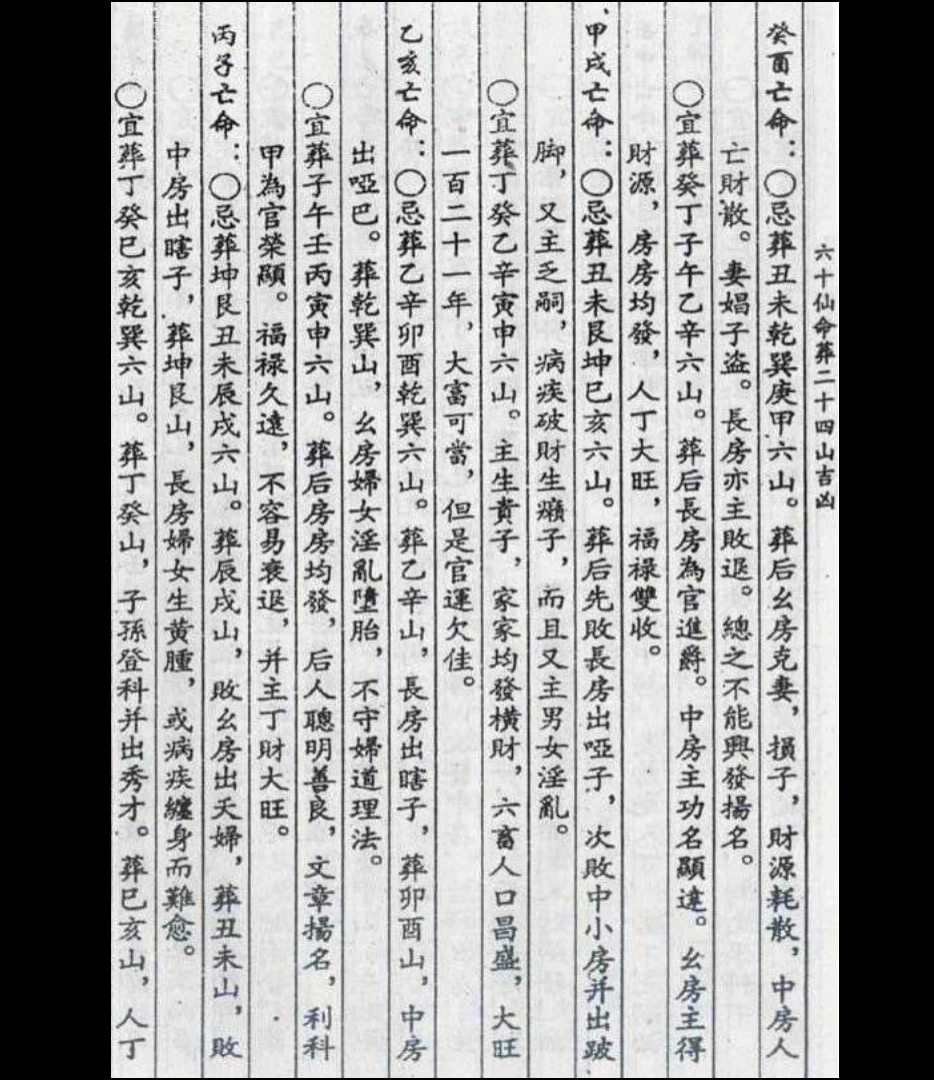 六十仙命葬二十四山吉凶
癸酉亡命：○忌葬丑未乾巽庚甲六山。葬后幺房克妻，損子，財源耗散，中房人
亡財散。妻娼子盜。長房亦主敗退。總之不能興發揚名。
○宜葬癸丁子午乙辛六山。葬后長房為官進爵。中房主功名顯達。幺房主得
財源，房房均發，人丁大旺，福祿雙收。
甲戌亡命：○忌葬丑未艮坤巳亥六山。葬后先敗長房出啞子，次敗中小房并出跛
脚，又主乏嗣，病疾破財生癩子，而且又主男女淫亂。
○宜葬丁癸乙辛寅申六山。主生貴子，家家均發橫財，六畜人口昌盛，大旺
一百二十一年，大富可當，但是官運欠佳。
乙亥亡命：○忌葬乙辛卯酉乾巽六山。葬乙辛山，長房出瞎子，葬卯酉山，中房
出啞巴。葬乾巽山，幺房婦女淫亂墮胎，不守婦道理法。
○宜葬子午壬丙寅申六山。葬后房房均發，后人聰明善良，文章揚名，利科
甲為官榮顯。福祿久遠，不容易衰退，并主丁財大旺。
丙子亡命：○忌葬坤艮丑未辰戌六山。葬辰戌山，敗幺房出夭婦，葬丑未山，敗
中房出瞎子，葬坤艮山，長房婦女生黄腫，或病疾纏身而難愈。
○宜葬丁癸巳亥乾巽六山。葬丁癸山，子孫登科并出秀才。葬巳亥山，人丁